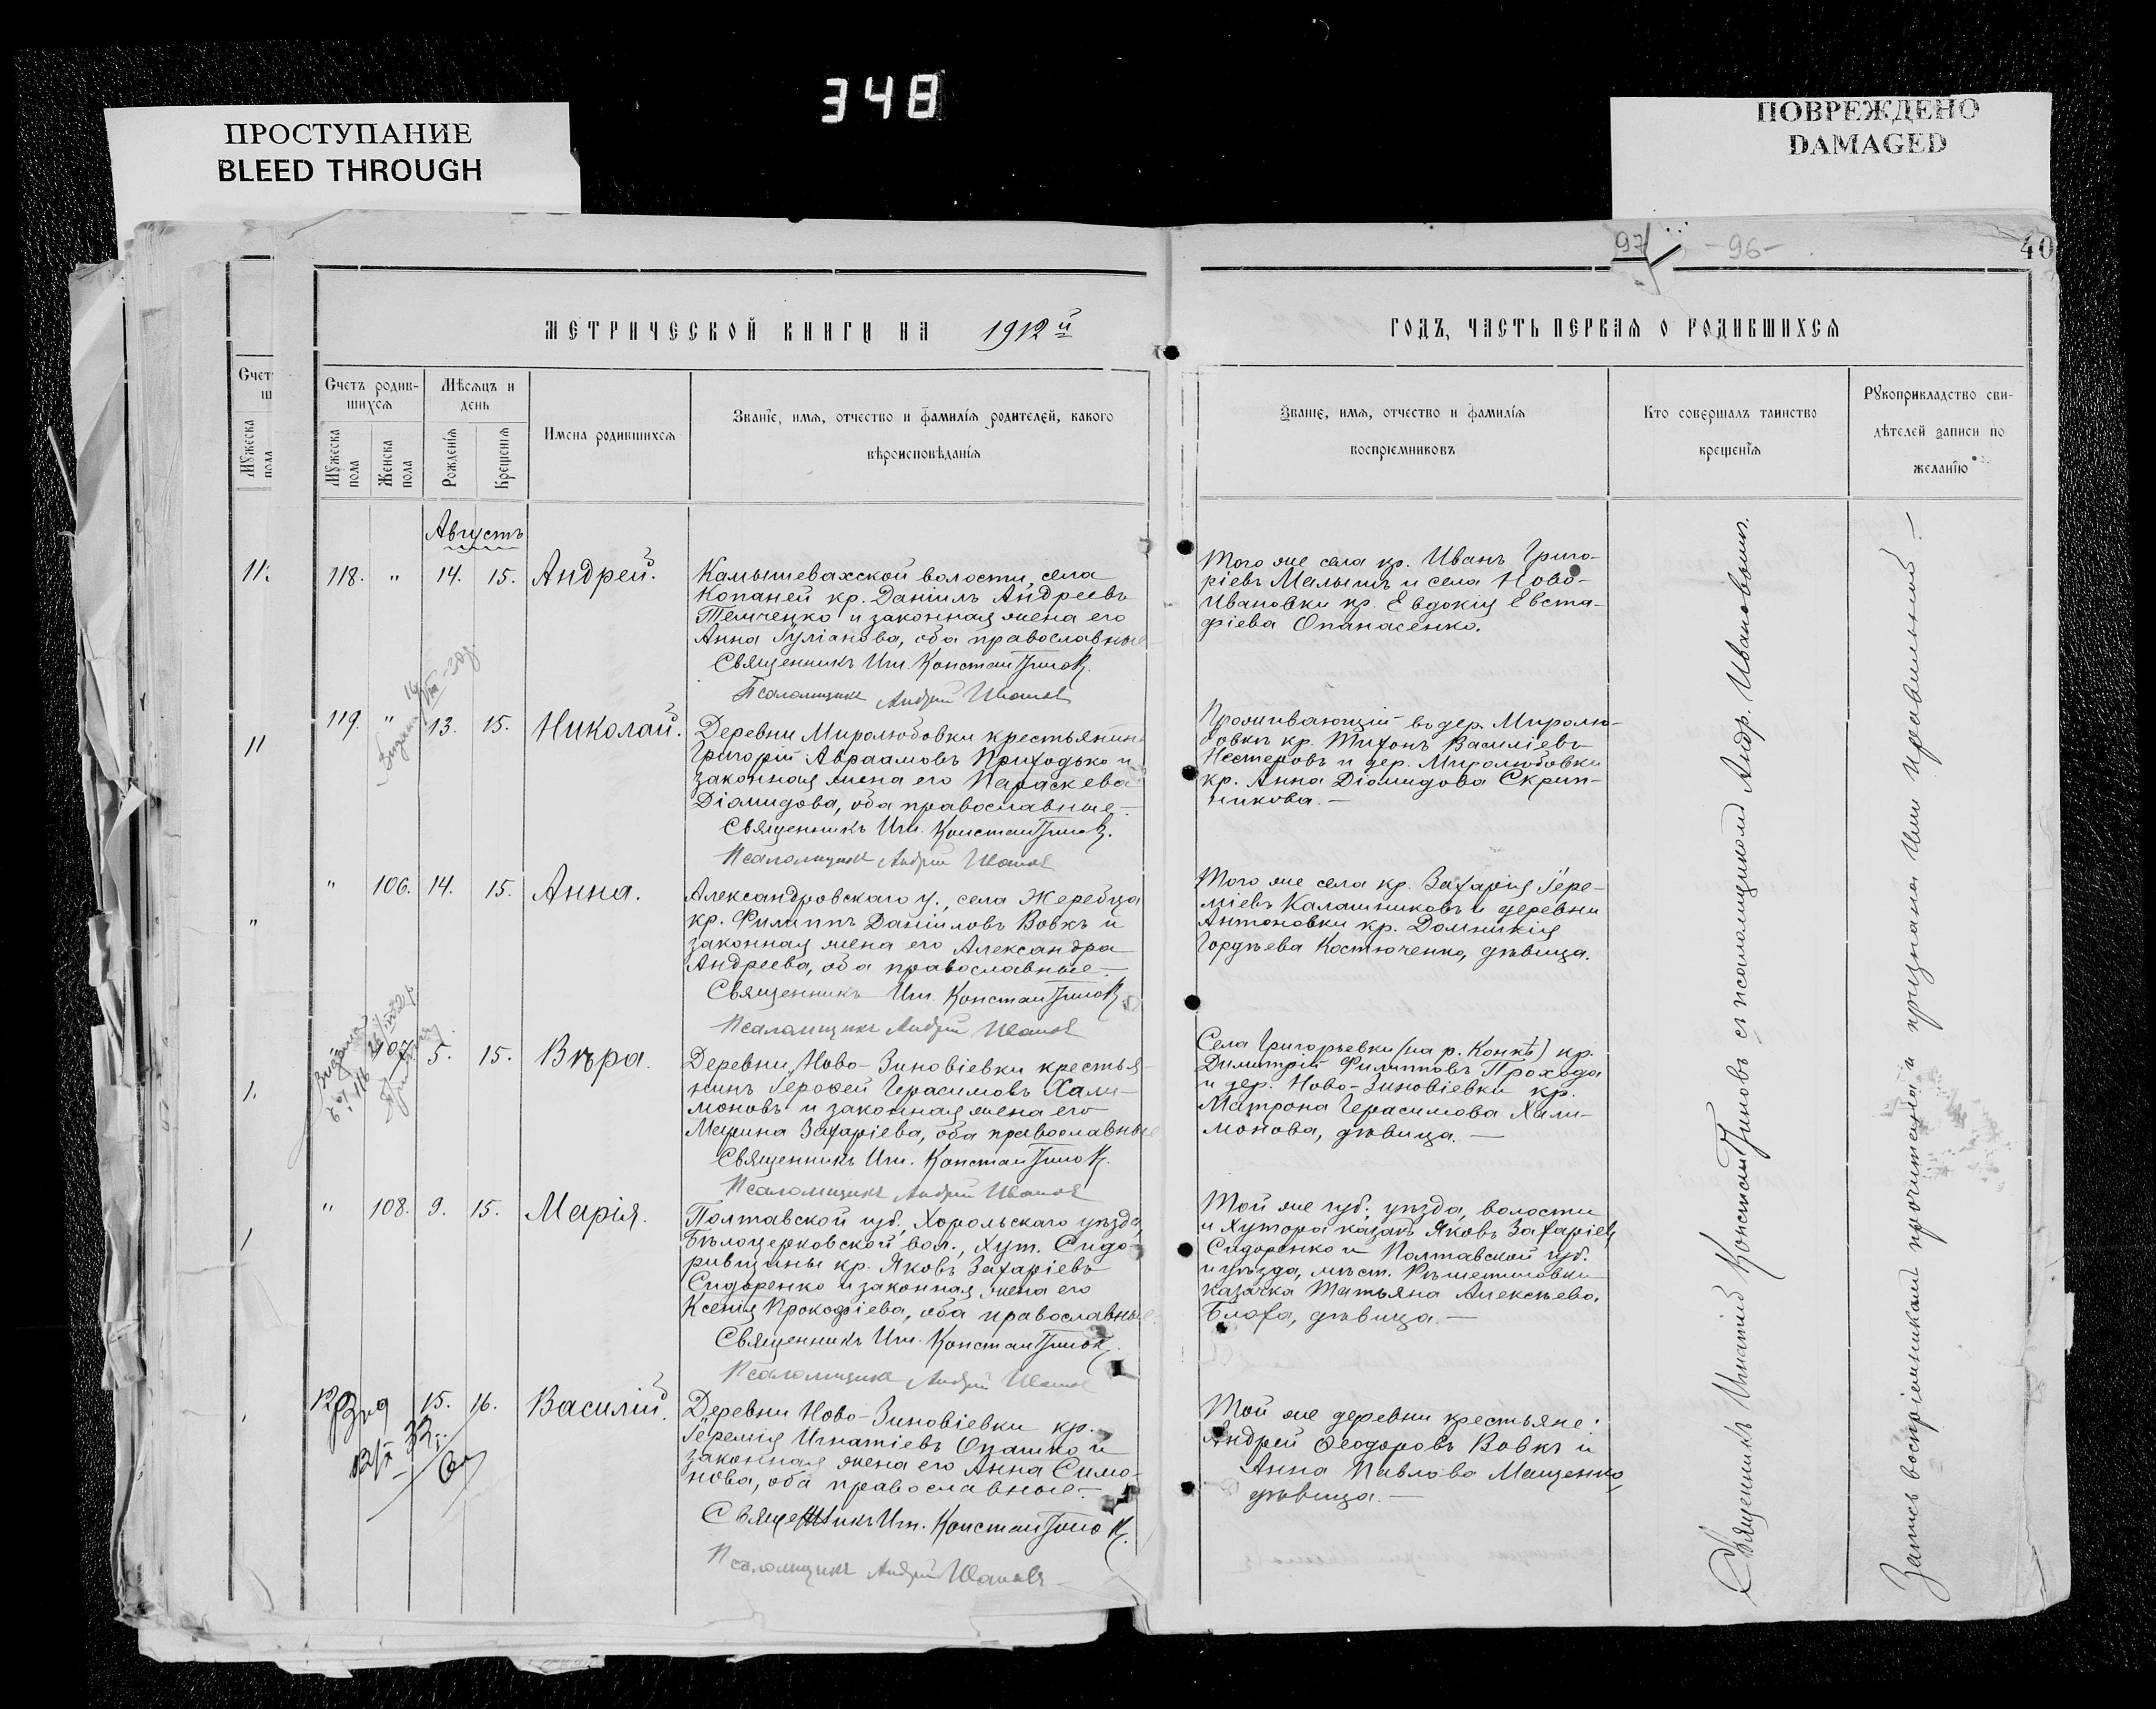 348
ПРОСТУПАНИЕ
BLEED THROUGH
ПОВРЕЖДЕНО
DAMAGED
97
-96-
40
МЕТРИЧЕСКОЙ КНИГИ НА 1912й
ГОДЪ, ЧАСТЬ ПЕРВАЯ О РОДИВШИХСЯ
Счетъ родив-
шихся
Мужеска
пола
Женска
пола
Мѣсяцъ и
день
Рожденія
Крещенія
Имена родившихся
Званіе, имя, отчество и фамилія родителей, какого
вѣроисповѣданія
Званіе, имя, отчество и фамилія
воспріемниковъ
Кто совершалъ таинство
крещенія
Рукоприкладство сви-
дѣтелей записи по
желанію
Августъ
118. " 14. 15. Андрей.
Камышевахской волости, села
Копаней кр. Даніилъ Андреевъ
Темченко и законная жена его
Анна Гуліанова, оба православные
Священникъ Игн. Константиновъ.
Псаломщикъ Андрей Ивановъ
Того же села кр. Иванъ Григо-
ріевъ Малышъ и села Ново-
Ивановки кр. Евдокія Евста-
фіева Опанасенко.
119. " 13. 15. Николай.
Деревни Миролюбовки крестьянинъ
Григорій Авраамовъ Приходько и
законная жена его Параскева
Діомидова, оба православные.-
Священникъ Игн. Константиновъ.
Псаломщикъ Андрей Ивановъ
Проживающій въ дер. Миролю-
бовкѣ кр. Тихонъ Василіевъ
Нестеровъ и дер. Миролюбовки
кр. Анна Діомидова Скрип-
никова.-
" 106. 14. 15. Анна.
Александровскаго у., села Жеребца
кр. Филиппъ Даніиловъ Вовкъ и
законная жена его Александра
Андреева, оба православные.-
Священникъ Игн. Константиновъ
Псаломщикъ Андрей Ивановъ
Того же села кр. Захарія Іере-
міевъ Калашниковъ и деревни
Антоновки кр. Домникія
Гордѣева Костюченко, дѣвица.
107. 5. 15. Вѣра.
Деревни Ново-Зиновіевки крестья-
нинъ Іерофей Герасимовъ Хали-
моновъ и законная жена его
Марина Захаріева, оба православные
Священникъ Игн. Константиновъ.
Псаломщикъ Андрей Ивановъ
Села Григорьевки (на р. Конкѣ) кр.
Димитрій Филипповъ Прохода
и дер. Ново-Зиновіевки кр.
Матрона Герасимова Хали-
монова, дѣвица.-
" 108. 9. 15. Марія.
Полтавской губ., Хорольскаго уѣзда,
Бѣлоцерковской вол., хут. Сидо-
ривщины кр. Яковъ Захаріевъ
Сидоренко и законная жена его
Ксенія Прокофіева, оба православные.
Священникъ Игн. Константиновъ.
Псаломщикъ Андрей Ивановъ
Той же губ., уѣзда, волости
и хутора казакъ Яковъ Захаріевъ
Сидоренко и Полтавской губ.
и уѣзда, мѣст. Рѣшетиловки
казачка Татьяна Алексѣева
Блоха, дѣвица.-
15. 16. Василій.
Деревни Ново-Зиновіевки кр.
Іеремія Игнатіевъ Опашко и
законная жена его Анна Симо-
нова, оба православные.-
Священникъ Игн. Константиновъ.
Псаломщикъ Андрей Ивановъ
Той же деревни крестьяне:
Андрей Ѳеодоровъ Вовкъ и
Анна Павлова Мащенко,
дѣвица.-
Священникъ Игнатій Константиновъ съ псаломщикомъ Андр. Ивановымъ.
Запись воспріемникамъ прочитана и признана ими правильной.-